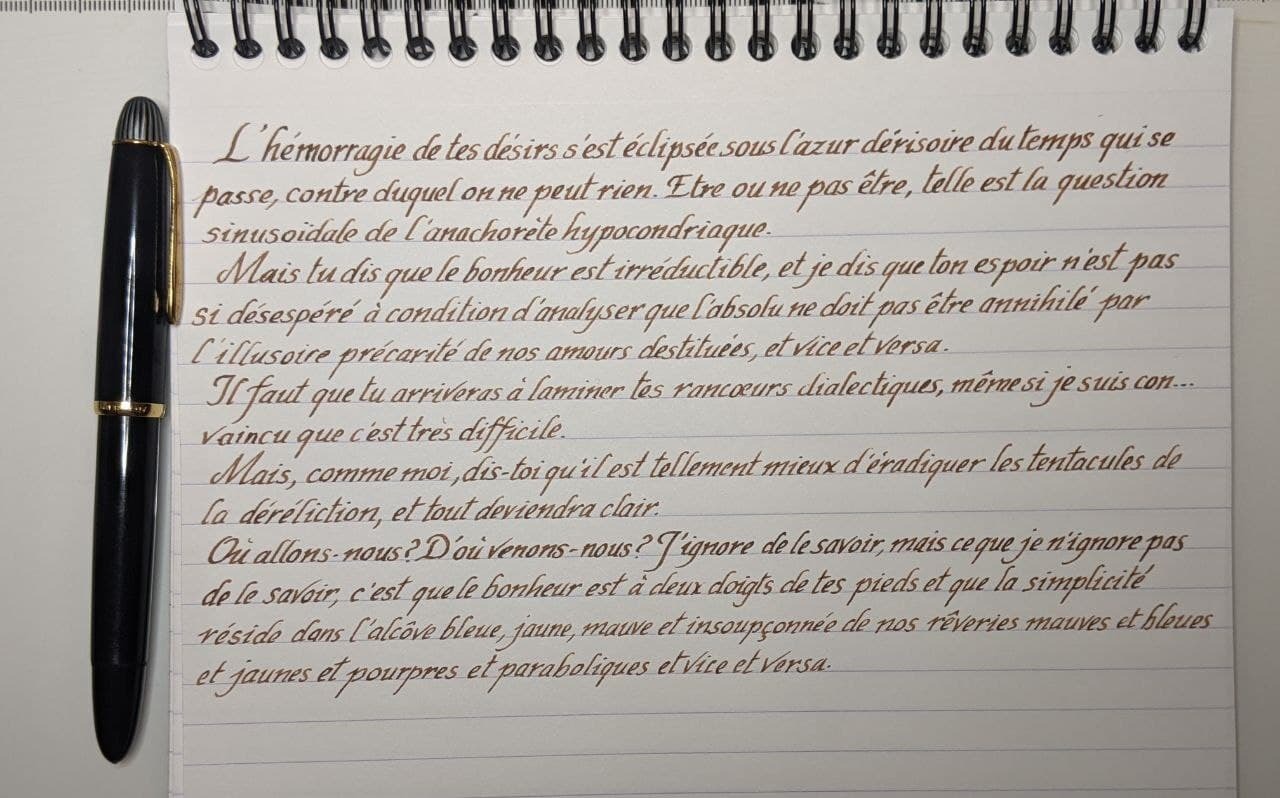 L'hémorragie de tes désirs s'est éclipsée sous l'azur dérisoire du temps qui se
passe, contre duquel on ne peut rien. Etre ou ne pas être, telle est la question
sinusoïdale de l'anachorète hypocondriaque.
Mais tu dis que le bonheur est irréductible, et je dis que ton espoir n'est pas
si désespéré à condition d'analyser que l'absolu ne doit pas être annihilé par
l'illusoire précarité de nos amours destituées, et vice et versa.
Il faut que tu arriveras à laminer tes rancœurs dialectiques, même si je suis con...
vaincu que c'est très difficile.
Mais, comme moi, dis-toi qu'il est tellement mieux d'éradiquer les tentacules de
la déréliction, et tout deviendra clair.
Où allons-nous? D'où venons-nous? J'ignore de le savoir, mais ce que je n'ignore pas
de le savoir, c'est que le bonheur est à deux doigts de tes pieds et que la simplicité
réside dans l'alcôve bleue, jaune, mauve et insoupçonnée de nos rêveries mauves et bleues
et jaunes et pourpres et paraboliques et vice et versa.